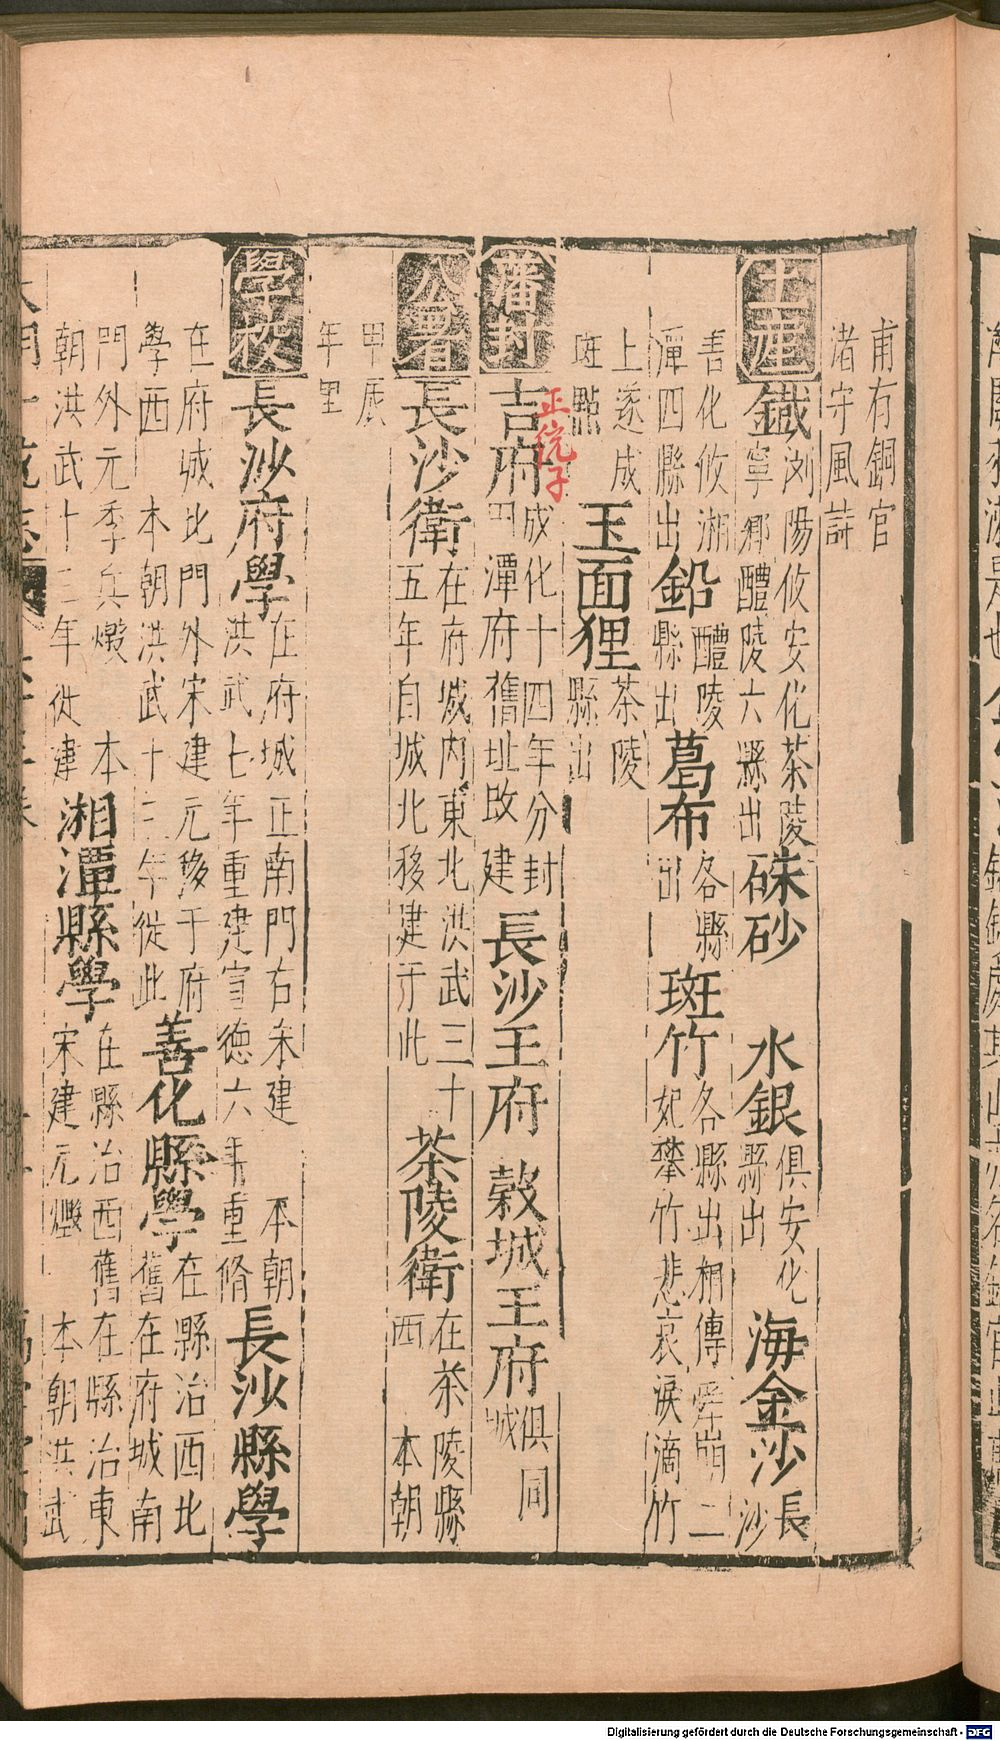 甫有銅官
渚守風詩
土產
鐵 瀏陽攸安化茶陵
寧鄉醴陵六縣出
硃砂 水銀 俱安化
縣出
海金沙 長
沙
善化攸湘
潭四縣出
鉛 醴陵
縣出
葛布 各縣
出
斑竹 各縣出相傳舜崩二
妃攀竹悲哀淚滴竹
上遂成
斑點
玉面狸 茶陵
縣出
藩封
吉府 成化十四年分封
潭府舊址改建
長沙王府 穀城王府 俱同
城
正統子
公署
長沙衛 在府城內東北洪武三十
五年自城北移建于此
茶陵衛 在茶陵縣
西 本朝
甲辰
年置
學校
長沙府學 在府城正南門右宋建 本朝
洪武七年重建宣德六年重脩
長沙縣學
在府城北門外宋建元移于府
學西 本朝洪武十三年徙此
善化縣學 在縣治西北
舊在府城南
門外元季兵燬 本
朝洪武十二年徙建
湘潭縣學 在縣治西舊在縣治東
宋建元燬 本朝洪武
Digitalisierung gefördert durch die Deutsche Forschungsgemeinschaft - DFG